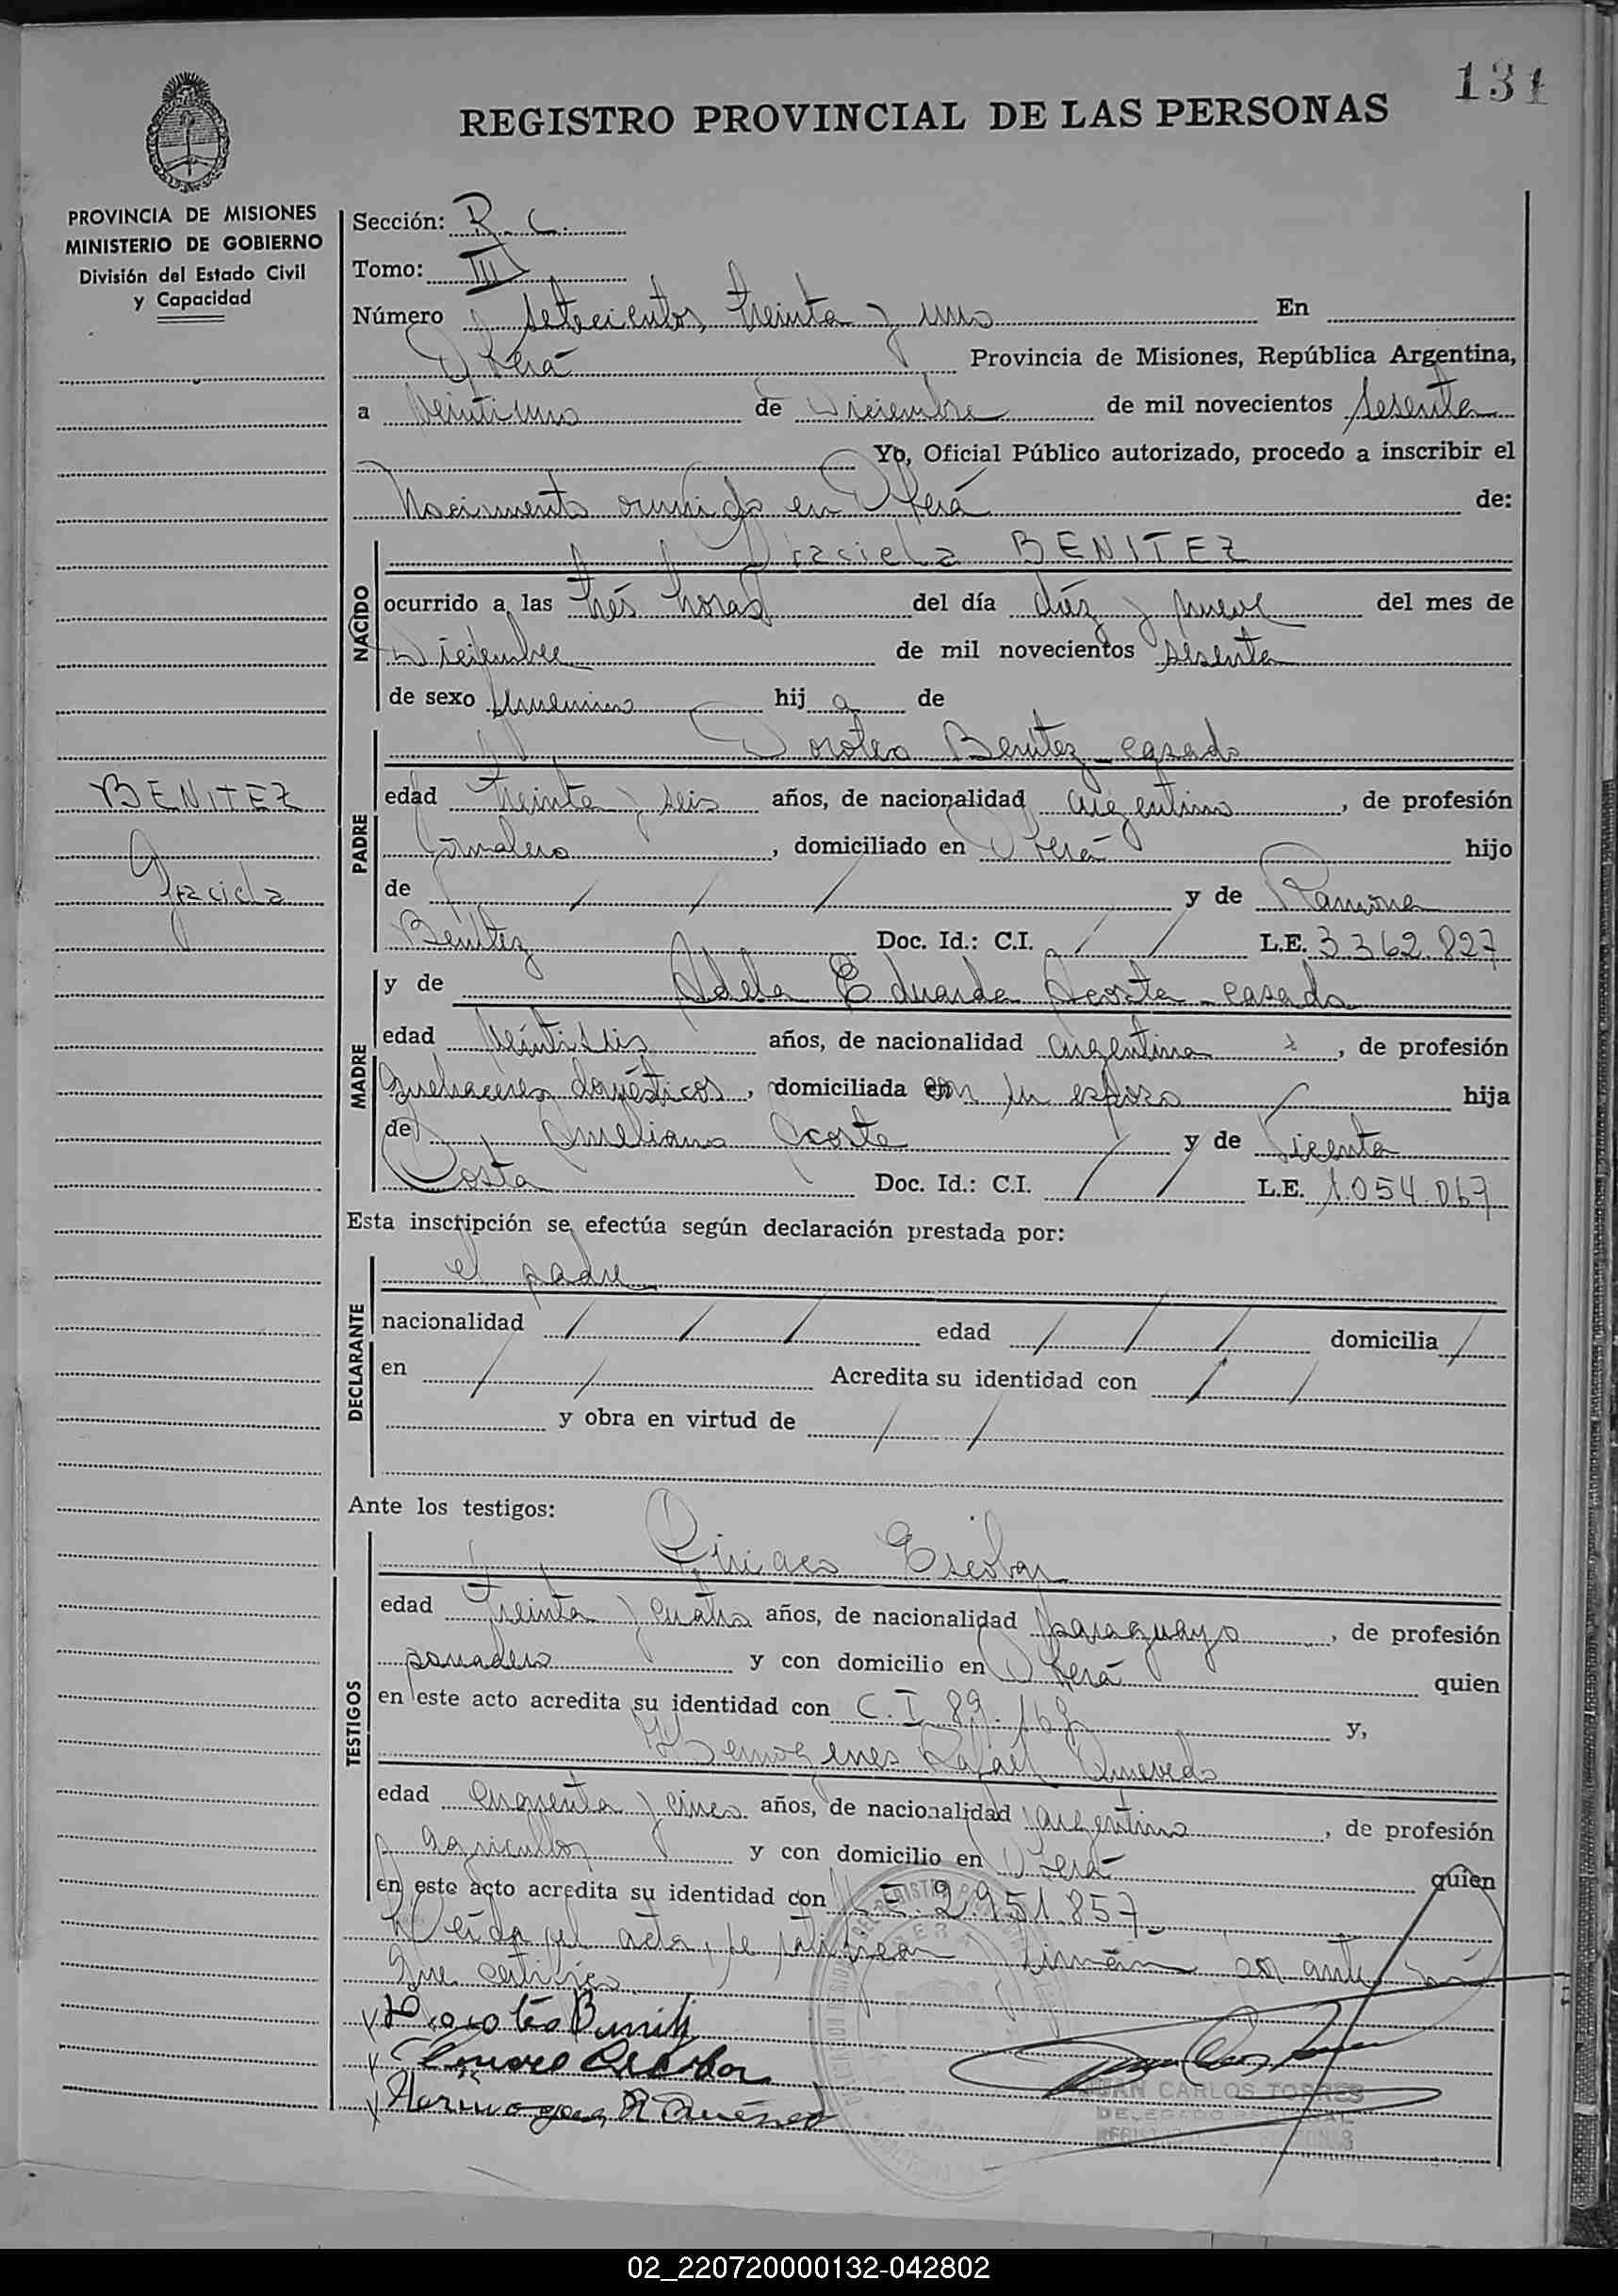 131
REGISTRO PROVINCIAL DE LAS PERSONAS
PROVINCIA DE MISIONES
MINISTERIO DE GOBIERNO
División del Estado Civil
y Capacidad
BENITEZ
Graciela
Sección: R. C.
Tomo: III
Número setecientos treinta y uno En
Oberá Provincia de Misiones, República Argentina,
a veintiuno de Diciembre de mil novecientos sesenta
Yo, Oficial Público autorizado, procedo a inscribir el
Nacimiento ocurrido en Oberá de:
Graciela BENITEZ
NACIDO
ocurrido a las trés horas del día diéz y nueve del mes de
Diciembre de mil novecientos sesenta
de sexo femenino hij a de
PADRE
Doroteo Benitez - casado
edad treinta y seis años, de nacionalidad argentino, de profesión
Jornalero, domiciliado en Oberá hijo
de / / / y de Ramona
Benitez Doc. Id.: C.I. / / L.E. 3.362.827
MADRE
y de Adela Eduarda Acosta - casada
edad veintiseis años, de nacionalidad argentina, de profesión
quehaceres domésticos, domiciliada con su esposo / hija
de Aureliano Acosta y de Vicenta
Costa Doc. Id.: C.I. / / L.E. 1.054.067
Esta inscripción se efectúa según declaración prestada por:
DECLARANTE
el padre
nacionalidad / / / edad / / / domicilia /
en / / Acredita su identidad con / /
y obra en virtud de / /
Ante los testigos:
TESTIGOS
Ciriaco Escobar
edad treinta y cuatro años, de nacionalidad paraguayo, de profesión
panadero y con domicilio en Oberá quien
en este acto acredita su identidad con C.I. 89.168 y,
Hermogenes Rafael Quevedo
edad cincuenta y cinco años, de nacionalidad argentino, de profesión
agricultor y con domicilio en Oberá quien
en este acto acredita su identidad con L.E. 2.951.857.-
Leida el acta, se ratifican firman por ante mi
que certifico.
Doroteo Benitez
Escobar
JUAN CARLOS TORRES
DELEGADO
02_220720000132-042802